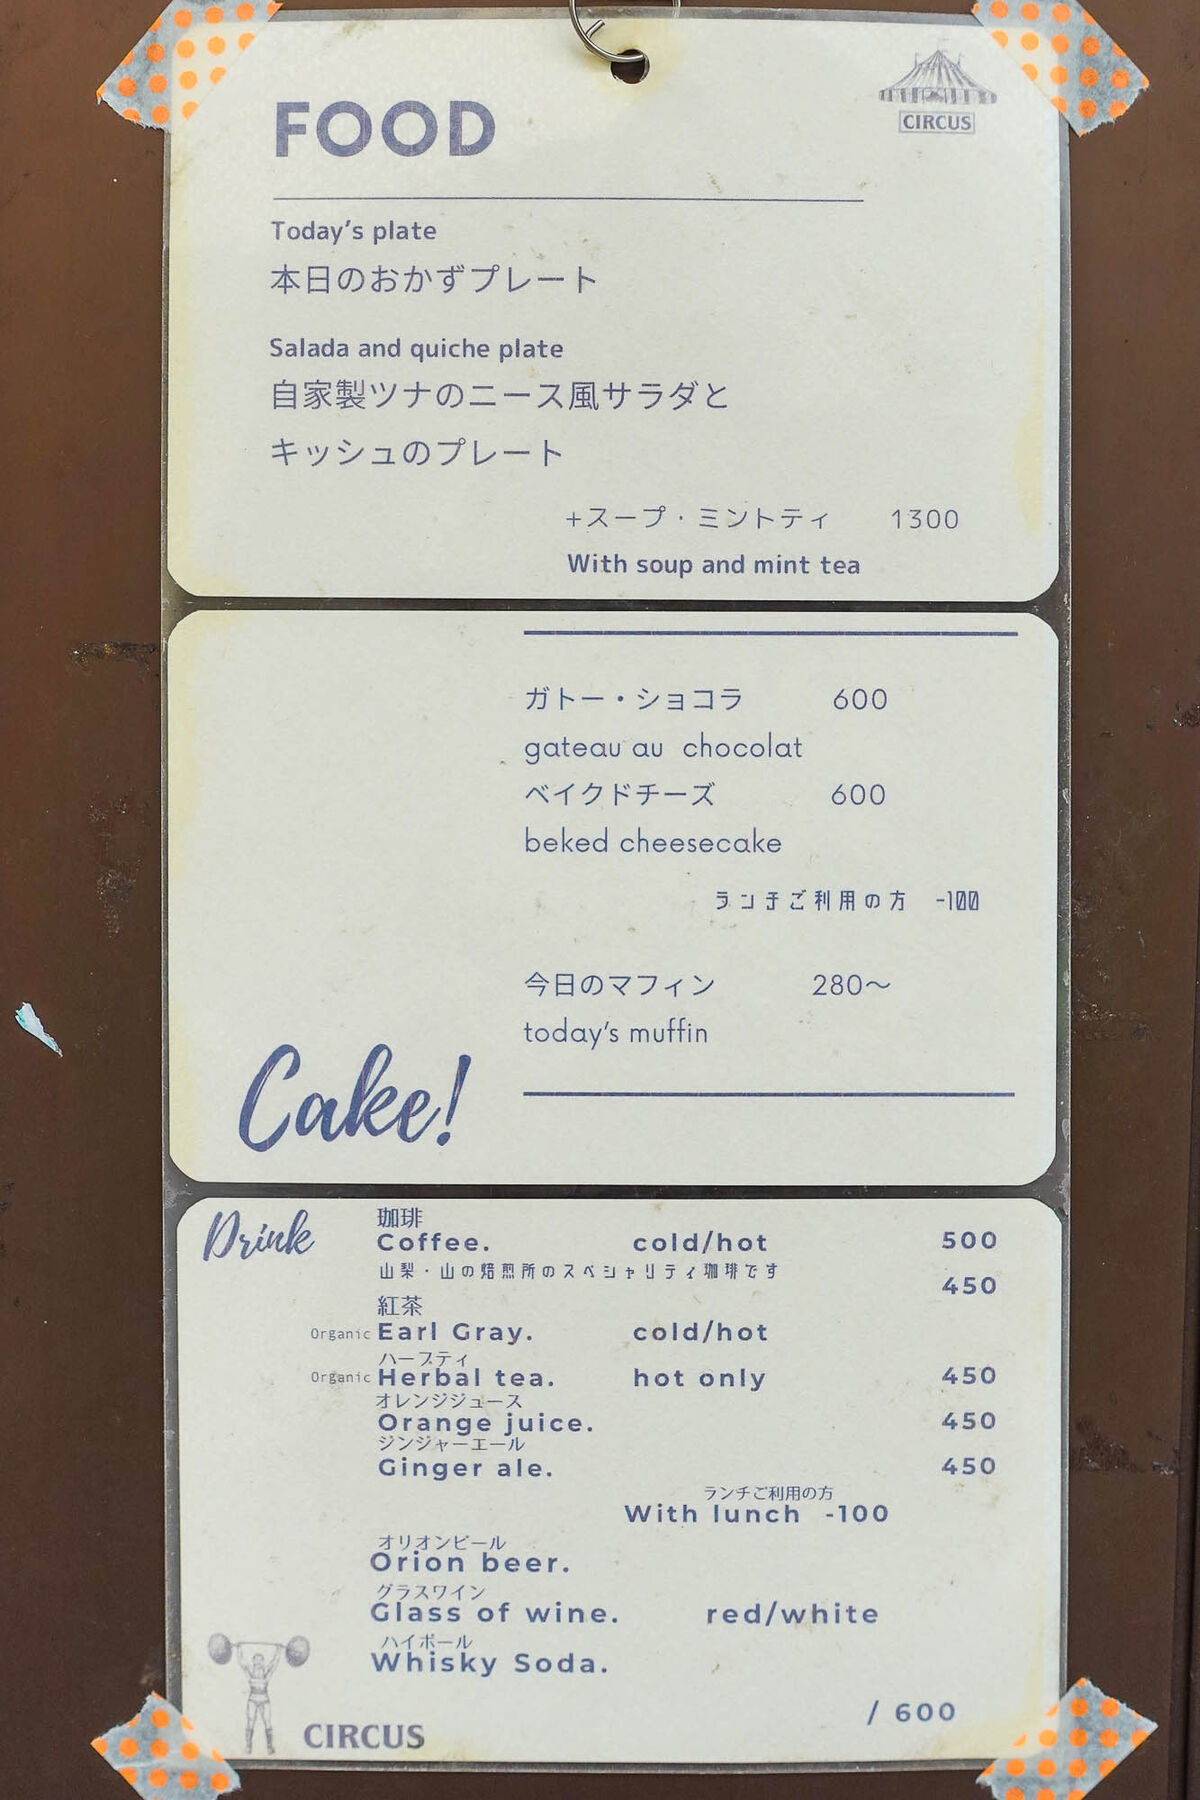 FOOD
CIRCUS
Today's plate
本日のおかずプレート
Salada and quiche plate
自家製ツナのニース風サラダと
キッシュのプレート
+スープ・ミントティ 1300
With soup and mint tea
ガトー・ショコラ 600
gateau au chocolat
ベイクドチーズ 600
beked cheesecake
ランチご利用の方 -100
今日のマフィン 280〜
today's muffin
Cake!
Drink
珈琲
Coffee. cold/hot 500
山梨・山の焙煎所のスペシャリティ珈琲です
450
紅茶
Organic Earl Gray. cold/hot
ハーブティ
Organic Herbal tea. hot only 450
オレンジジュース
Orange juice. 450
ジンジャーエール
Ginger ale. 450
ランチご利用の方
With lunch -100
オリオンビール
Orion beer.
グラスワイン
Glass of wine. red/white
ハイボール
Whisky Soda.
/ 600
CIRCUS